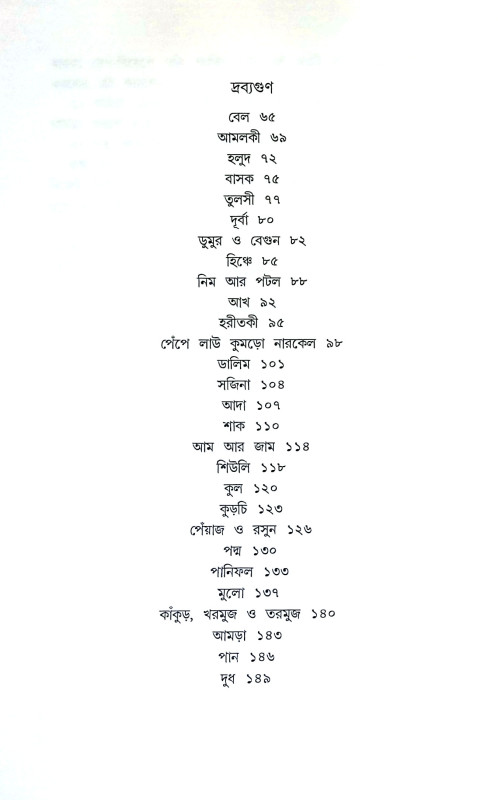 দ্রব্যগুণ
বেল ৬৫
আমলকী ৬৯
হলুদ ৭২
বাসক ৭৫
তুলসী ৭৭
দূর্বা ৮০
ডুমুর ও বেগুন ৮২
হিঞ্চে ৮৫
নিম আর পটল ৮৮
আখ ৯২
হরীতকী ৯৫
পেঁপে লাউ কুমড়ো নারকেল ৯৮
ডালিম ১০১
সজিনা ১০৪
আদা ১০৭
শাক ১১০
আম আর জাম ১১৪
শিউলি ১১৮
কুল ১২০
কুড়চি ১২৩
পেঁয়াজ ও রসুন ১২৬
পদ্ম ১৩০
পানিফল ১৩৩
মুলো ১৩৭
কাঁকুড়, খরমুজ ও তরমুজ ১৪০
আমড়া ১৪৩
পান ১৪৬
দুধ ১৪৯